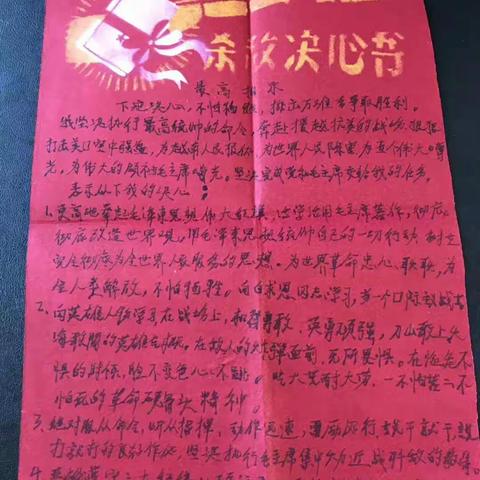 杀敌决心书
最高指示
下定决心，不怕牺牲，排出万难去争取胜利。
我坚决执行最高统帅的命令，奔赴援越抗美的战场，狠狠
打击美
为越南人民报仇，为世界人民除害为五个伟大争
光，为伟大的领袖毛主席争光。坚决完成党和毛主席交给我的任务，
表示以下我的决心：
1.更高地举起毛泽东思想伟大红旗，活学活用毛主席著作，彻底
彻底改造世界观，用毛泽东思想统帅自己的一切行动，树立
完全彻底为全世界人民服务的思想。为世界革命忠心耿耿，为
全人类解放，不怕牺牲。向白求恩同志学习，当一个国际
2.向英雄人
学习在战场上，机智勇敢，英勇顽强，刀山敢上火
海敢闯的英雄
在敌人的
弹面前，无所畏惧。在
怕的时候，脸不变色心不跳。吃大苦耐大劳，一不怕苦二不
怕死的革命硬骨头精神。
3.绝对服从命令，听从指挥，动作迅速，雷厉风行，
干
打就打的良好作风，坚决执行毛主席集中
近战歼敌的